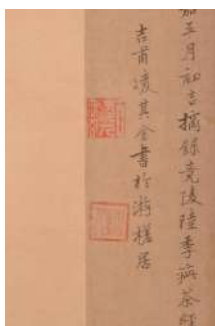 五月初吉摘録竟陵陸季疵茶經
吉甫凌其全書於游槎居